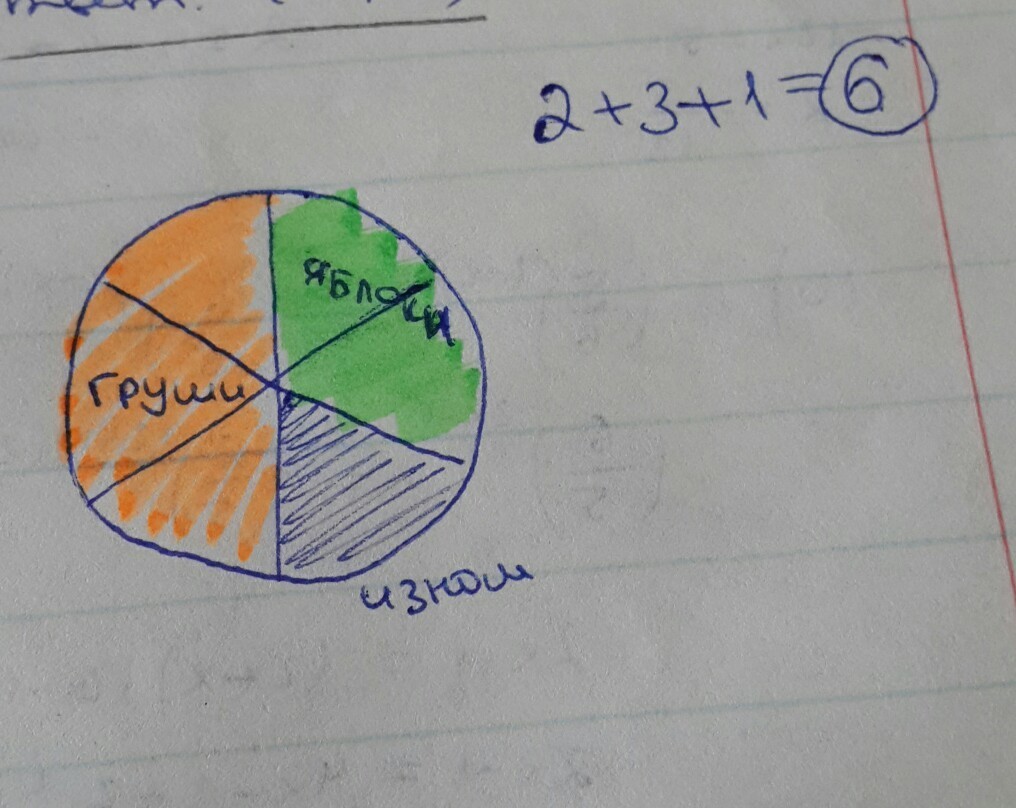 2+3+1=6
яблоки
груши
изюм